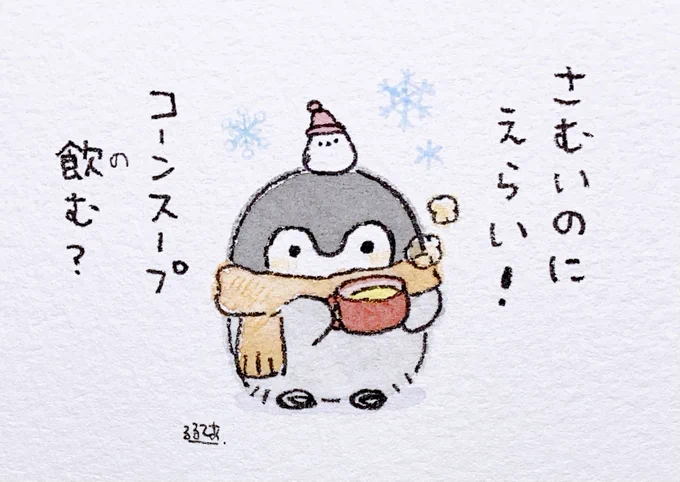 さむいのに
えらい!
コーンスープ
飲む?
の
るるてあ.